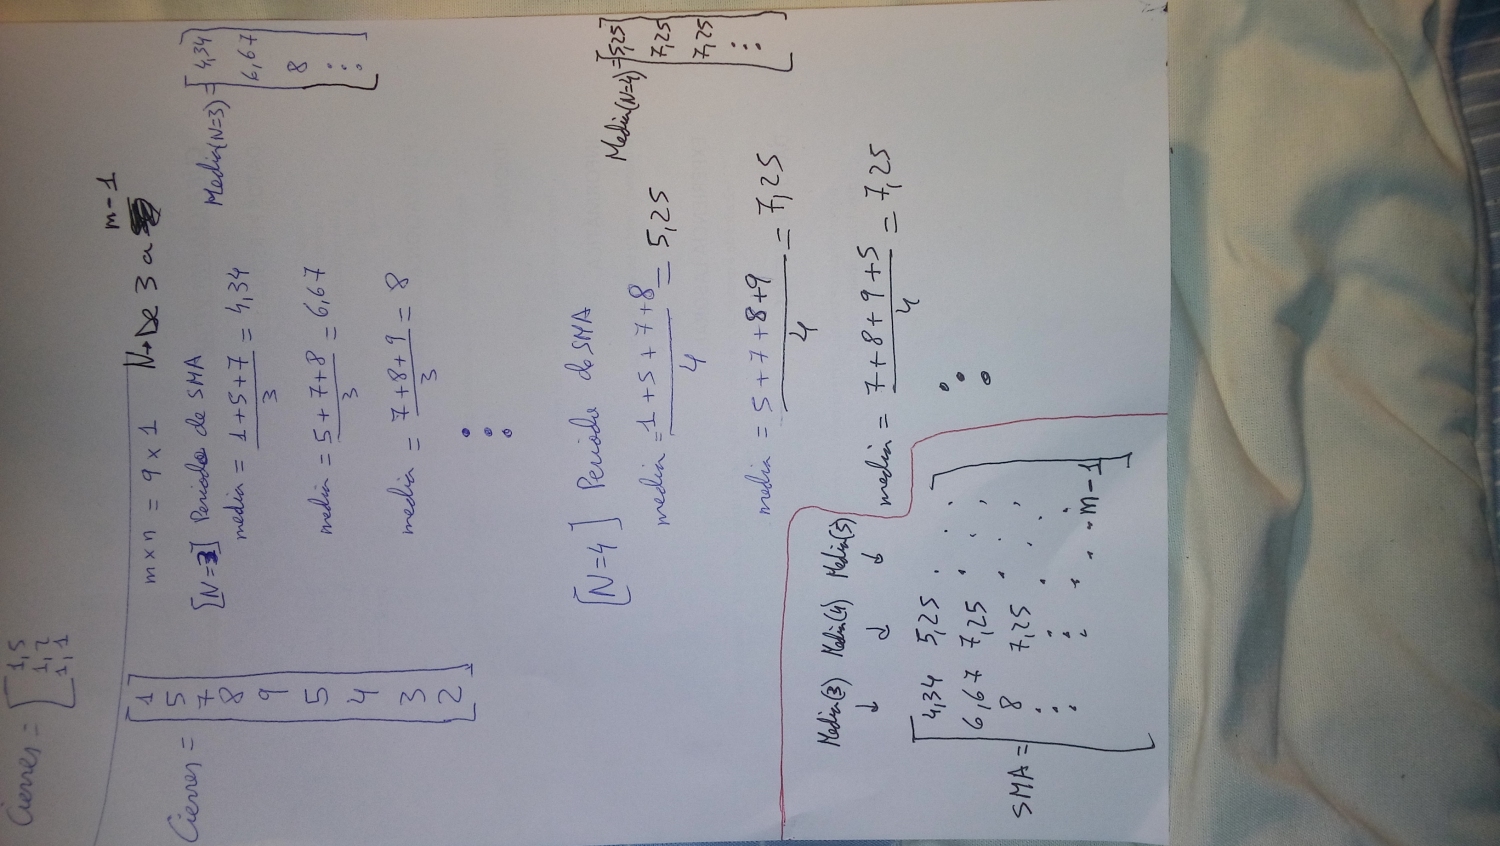 Cierres = [ 1,5
1,2
1,1
Cierres = [ 1
5
7
8
9
5
4
3
2 ]
m x n = 9 x 1 N→De 3 a m-1
[N=3] Periodo de SMA
media = 1+5+7 / 3 = 4,34
media = 5+7+8 / 3 = 6,67
media = 7+8+9 / 3 = 8
Media(N=3) = [ 4,34
6,67
8
⋮ ]
[N=4] Periodo de SMA
media = 1+5+7+8 / 4 = 5,25
media = 5+7+8+9 / 4 = 7,25
media = 7+8+9+5 / 4 = 7,25
Media(N=4) = [ 5,25
7,25
7,25
⋮ ]
Media(3) Media(4) Media(5)
↓ ↓ ↓
SMA = [ 4,34 5,25 . .
6,67 7,25 . .
8 7,25 . .
⋮ ⋮ . . m-1 ]